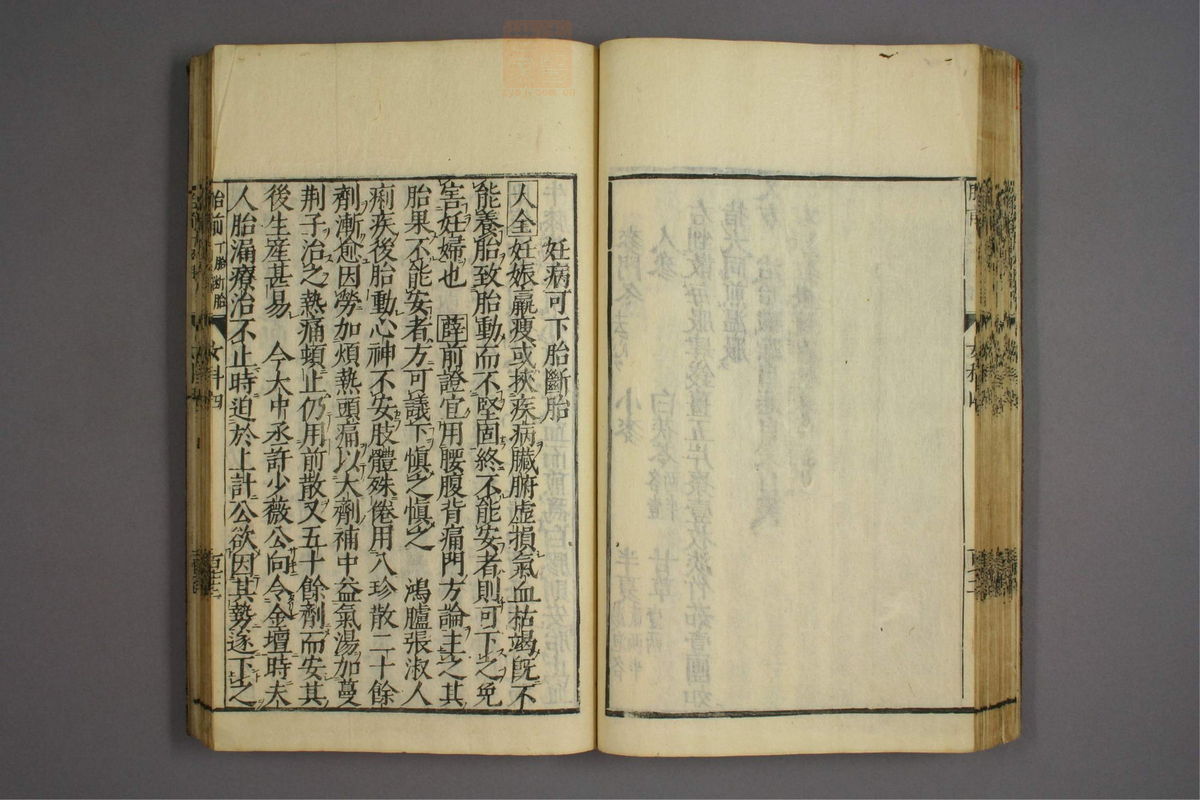 妊病可下胎斷胎
大全妊娠羸瘦或挾疾病臟腑虛損氣血枯竭既不
能養胎致胎動而不堅固終不能安者則可下之免
害妊婦也 薛前證宜用腰腹背痛門方論主之其
胎果不能安者方可議下慎之慎之 鴻臚張淑人
痢疾後胎動心神不安肢體殊倦用八珍散二十餘
劑漸愈因勞加煩熱頭痛以大劑補中益氣湯加蔓
荆子治之熱痛頓止仍用前散又五十餘劑而安其
後生產甚易 今大中丞許少薇公向令金壇時夫
人胎漏療治不止時迫於上計公欲因其勢遂下之
胎前 下胎斷胎 女科四